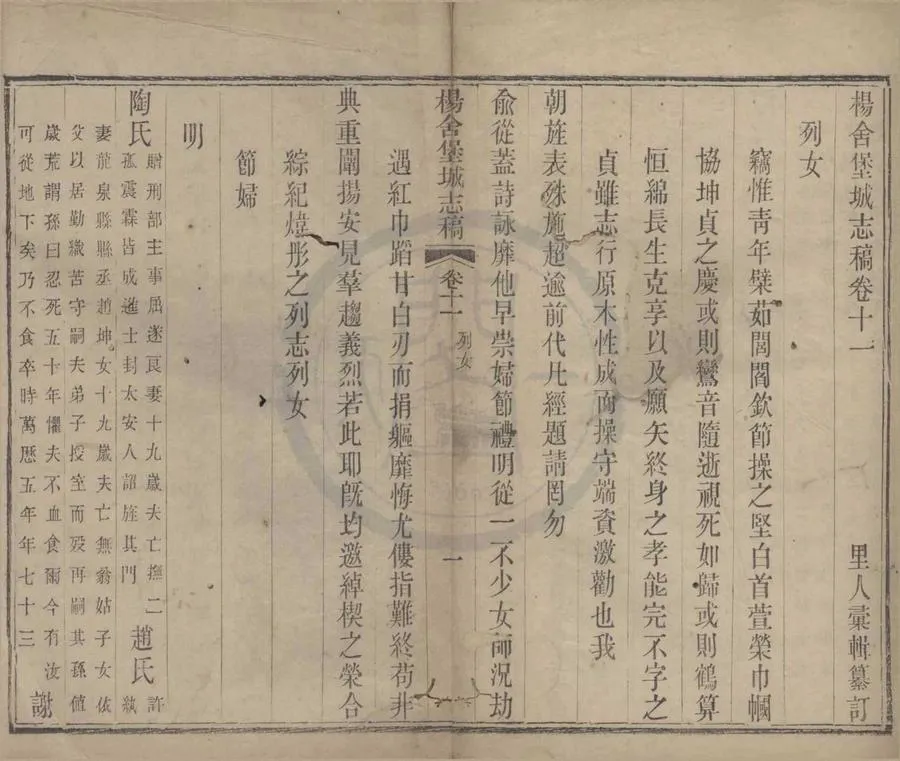 楊舍堡城志稿卷十一 里人彙輯纂訂
列女
竊惟靑年櫱茹閭閻欽節操之堅白首萱榮巾幗
協坤貞之慶或則鸞音隨逝視死如歸或則鶴算
恒綿長生克享以及願矢終身之孝能完不字之
貞雖志行原本性成而操守端資激勸也我
朝旌表殊施超逾前代凡經題請罔勿
兪從蓋詩詠靡他早崇婦節禮明從一不少女師況劫
楊舍堡城志稿 卷十一 列女 一
遇紅巾蹈甘白刃而捐軀靡悔尤僂指難終苟非
典重闡揚安見羣趨義烈若此耶旣均邀綽楔之榮合
綜紀煒彤之列志列女
節婦
明
陶氏 贈刑部主事屈遂良妻十九歲夫亡撫二
孤震霖皆成進士封太安人詔旌其門 趙氏 許紞
妻龍泉縣縣丞趙坤女十九歲夫亡無翁姑子女依
父以居勤織苦守嗣夫弟子授室而歿再嗣其孫値
歲荒謂孫曰忍死五十年懼夫不血食爾今有汝
可從地下矣乃不食卒時萬厯五年年七十三 謝